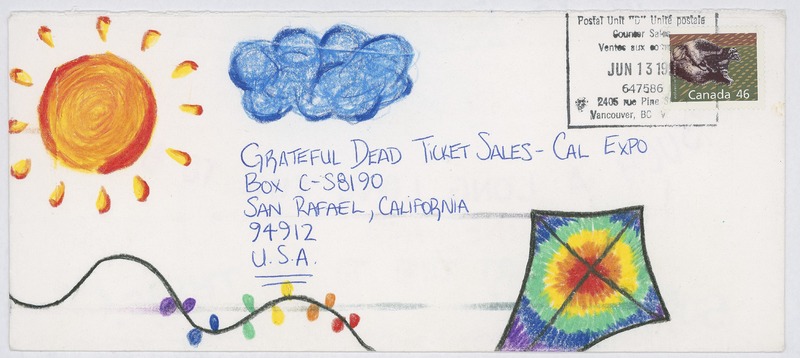 Postal Unit "D" Unité postale
Counter Sales
Ventes aux
JUN 13 19
647586
2405 rue Pine
Vancouver, BC V
Canada 46
GRATEFUL DEAD TICKET SALES - CAL EXPO
BOX C-S8190
SAN RAFAEL, CALIFORNIA
94912
U.S.A.